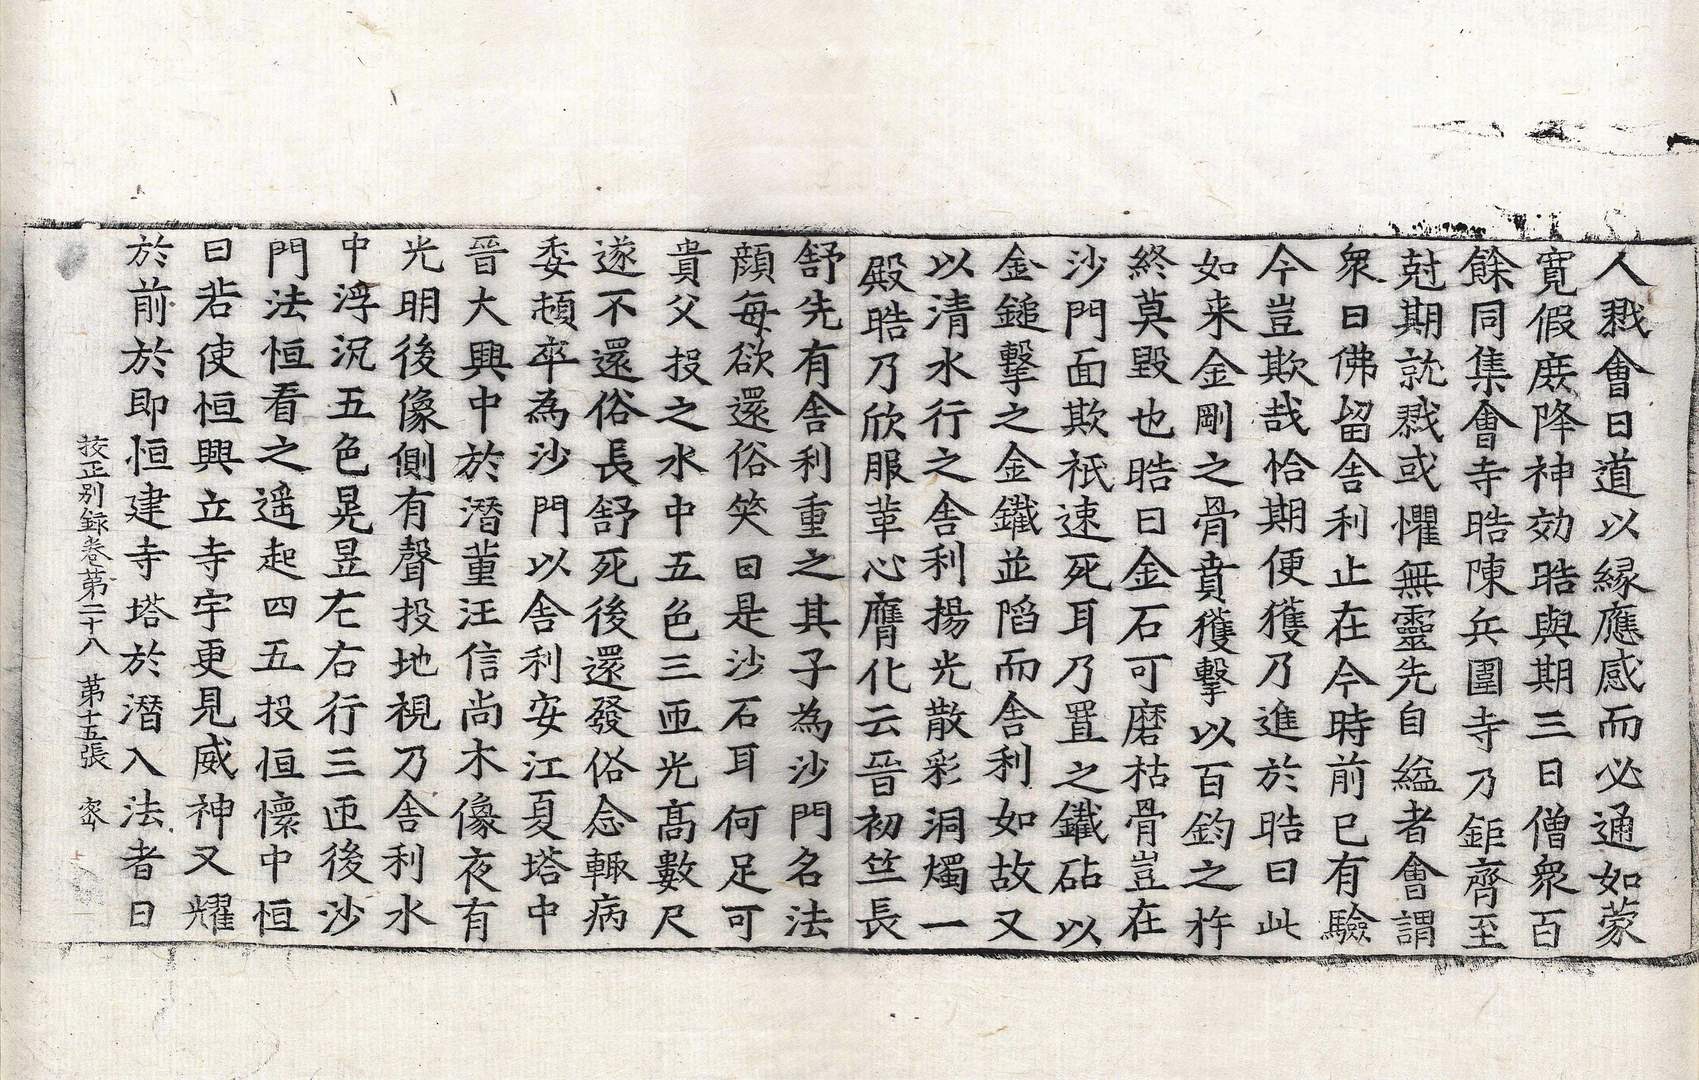 人戮會曰道以緣應感而必通如蒙
寬假庶降神効晧與期三日僧衆百
餘同集會寺晧陳兵圍寺刀鉅齊至
尅期就戮或懼無靈先自縊者會謂
衆曰佛留舍利止在今時前已有驗
今豈欺哉恰期便獲乃進於晧曰此
如来金剛之骨賁獲擊以百鈞之杵
終莫毀也晧曰金石可磨枯骨豈在
沙門面欺祇速死耳乃置之鐵砧以
金鎚擊之金鐵並陷而舍利如故又
以清水行之舍利揚光散彩洞燭一
殿晧乃欣服輩心膺化云晉初竺長
舒先有舍利重之其子為沙門名法
顔每欲還俗笑曰是沙石耳何足可
貴父投之水中五色三匝光高數尺
遂不還俗長舒死後還發俗念輙病
委頓卒為沙門以舍利安江夏塔中
晉大興中於潛董汪信尚木像夜有
光明後像側有聲投地視乃舍利水
中浮沉五色晃昱左右行三匝後沙
門法恒看之遥起四五投恒懷中恒
曰若使恒興立寺宇更見威神又耀
於前於即恒建寺塔於潛入法者日
挍正別録卷第二十八 第十五張 密